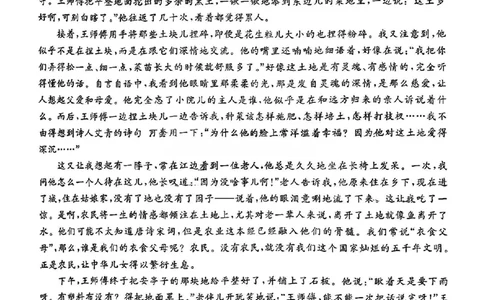 子。王师傅把平整地面挖出的多余的黑土，一锹一锹地添到东边儿的菜地里，一边说：“这土多
好呵，可别白瞎了。”他往返了几十次，看着都觉得累人。
接着，王师傅用手将那些土块儿捏碎，即使是花生粒儿大小的也捏得粉碎。我又注意到，他
似乎不是在捏土块，而是在跟它们深情地交流。他的嘴里还喃喃地细语着，好像在说：“我把你
们弄得松一点、细一点，菜苗长大的时候就舒服多了。”好像这土地是有灵魂、有感情的，完全听
得懂他的话。自言自语中，我看到他眼睛里那柔柔的光，那是发自灵魂的深情，是那么慈爱，让
人想起父爱和母爱。他完全忘了小院儿的主人是谁，他似乎是在和远方归来的亲人诉说着什
么。而后，王师傅一边捏土块儿一边告诉我，种菜该怎样施肥，怎样培土，怎样打枝杈……我不
由得想到诗人艾青的诗句 万套用一下：“为什么他的脸上常洋溢着幸福？因为他对这土地爱得
深沉……”
这又让我想起有一阵子，常在江边遇到一位老人，他总是久久地坐在长椅上发呆。一次，我
问他怎么一个人待在这儿，他长叹道：“因为没啥事儿啊！”老人告诉我，他原来住在乡下，现在进
了城，住在姑娘家，没有了地也没有了园子——说着，他的眼泪竟唰地流了下来。这让我吃了一
惊。是啊，农民将一生的情感都倾注在土地上，尤其对老一辈人来说，离开了土地就像鱼离开了
水。他们可能不太知道唐诗宋词，但是农业这本经已经融入他们的骨髓。我们常说“衣食父
母”，那么，谁是我们的衣食父母呢？农民。没有农民，就没有我们这个国家灿烂的五千年文明。
正是农民，让中华儿女得以繁衍生息。
下午，王师傅终于把安亭子的那块地给平整好了，并铺上了石板。他说：“瞅着天是要下雨